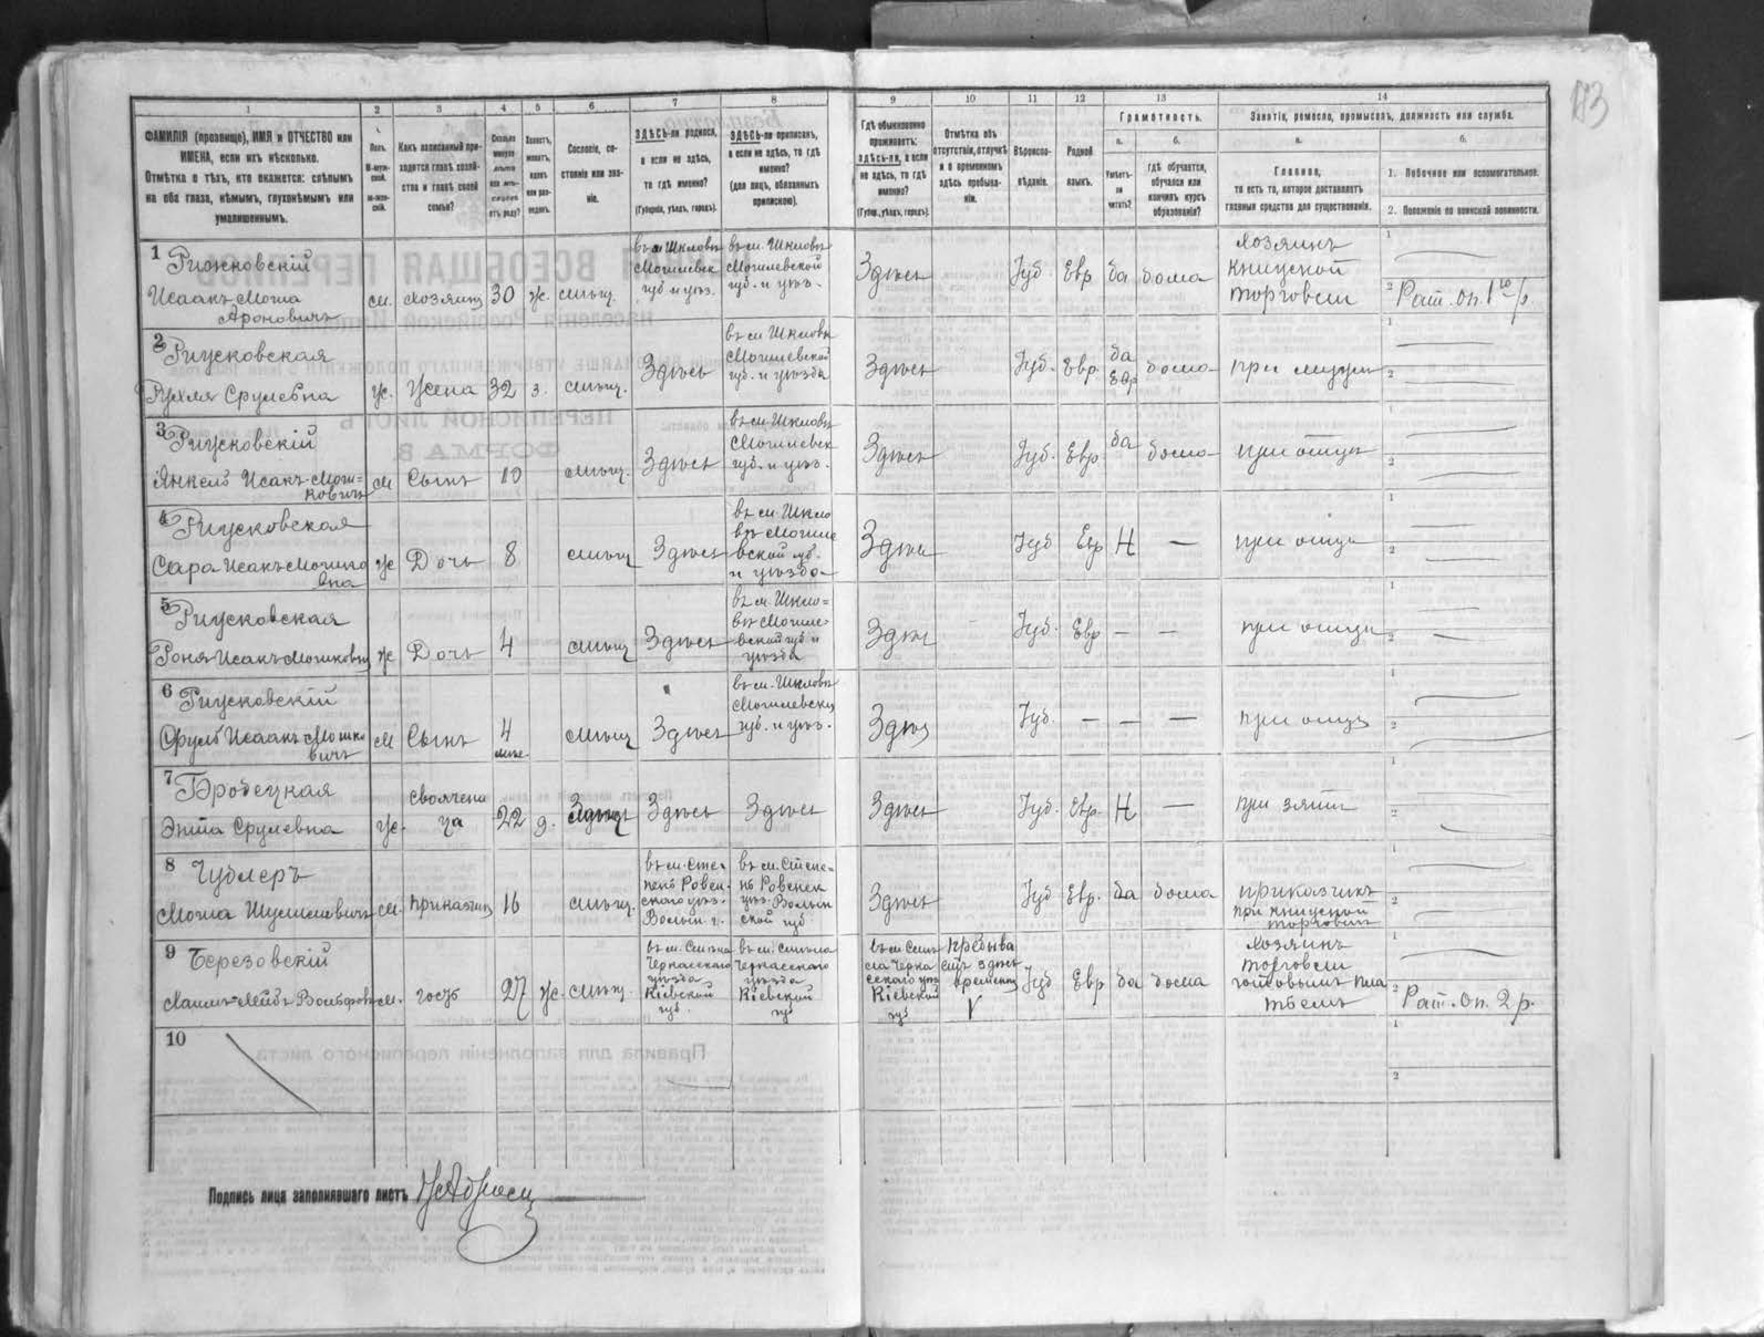 113
1 2 3 4 5 6 7 8 9 10 11 12 13 14
ФАМИЛІЯ (прозвище), ИМЯ и ОТЧЕСТВО или
ИМЕНА, если ихъ нѣсколько.
Отмѣтка о тѣхъ, кто окажется: слѣпымъ
на оба глаза, нѣмымъ, глухонѣмымъ или
умалишеннымъ.
Полъ.
М-муж-
ской.
Ж-жен-
скій.
Какъ записанный при-
ходится главѣ хозяй-
ства и главѣ своей
семьи?
Сколько
минуло
лѣтъ
или мѣ-
сяцевъ
отъ роду?
Холостъ,
женатъ,
вдовъ
или раз-
веденъ.
Сословіе, со-
стояніе или зва-
ніе.
ЗДѢСЬ-ли родился,
а если не здѣсь,
то гдѣ именно?
(Губернія, уѣздъ, городъ).
ЗДѢСЬ-ли приписанъ,
а если не здѣсь, то гдѣ
именно?
(для лицъ, обязанныхъ
припискою).
Гдѣ обыкновенно
проживаетъ:
здѣсь-ли, а если
не здѣсь, то гдѣ
именно?
(Губер., уѣздъ, городъ).
Отмѣтка объ
отсутствіи, отлучкѣ
и о временномъ
здѣсь пребыва-
ніи.
Вѣроиспо-
вѣданіе.
Родной
языкъ.
Грамотность.
а.
Умѣетъ-
ли
читать?
б.
гдѣ обучается,
обучался или
кончилъ курсъ
образованія?
Занятіе, ремесло, промыселъ, должность или служба.
а.
Главное,
то есть то, которое доставляетъ
главныя средства для существованія.
б.
1. Побочное или вспомогательное.
2. Положеніе по воинской повинности.
1 Рижковскій
Исаакъ-Моша
Ароновичъ
м. хозяинъ 30 ж. мѣщ.
въ м. Шкловѣ
Могилевск
губ и уѣз.
въ м. Шкловѣ
Могилевской
губ. и уѣз.
Здѣсь
Іуд. Евр да дома
хозяинъ
книжной
торговли
1
2 Рат. оп. 1го р
2 Рижковская
Рухля Срулевна
ж. жена 32 з. мѣщ. Здѣсь
въ м. Шкловѣ
Могилевской
губ. и уѣзда
Здѣсь Іуд. Евр.
да
Евр
дома при мужѣ
1
2
3 Рижковскій
Янкель Исакъ-Мош-
ковичъ
м Сынъ 10 мѣщ. Здѣсь
въ м. Шкловѣ
Могилевск
губ. и уѣз.
Здѣсь Іуд. Евр да дома при отцѣ
1
2
4 Рижковская
Сара Исакъ-Мошко
вна
ж Дочь 8 мѣщ Здѣсь
въ м. Шкло
вѣ Могиле
вской губ.
и уѣзда
Здѣсь Іуд Евр Н — при отцѣ
1
2
5 Рижковская
Роня Исакъ-Мошковна
ж Дочь 4 мѣщ Здѣсь
въ м. Шкло-
вѣ Могиле-
вской губ и
уѣзда
Здѣсь Іуд. Евр — — при отцѣ
1
2
6 Рижковскій
Сруль Исаакъ Мошко
вичъ
м Сынъ
4
мѣс.
мѣщ Здѣсь
въ м. Шкловѣ
Могилевск
губ. и уѣз.
Здѣсь Іуд. — — — при отцѣ
1
2
7 Бродецкая
Энта Срулевна
ж.
своячени
ца
22 д. Здѣсь Здѣсь
Здѣсь Іуд. Евр. Н — при зятѣ
1
2
8
Моша
м. приказчикъ 16 мѣщ.
въ м. Сте-
пенѣ Ровен-
скаго уѣз.
Волын г.
въ м. Степе-
нѣ Ровенск
уѣз. Волын
ской губ
Здѣсь Іуд Евр. да дома
приказчикъ
при книжной
торговлѣ
1
2
9 Березовскій
м. гость 27 ж. мѣщ.
въ м. Смѣла
Черкасскаго
уѣзда
Кіевской
губ.
въ м. Смѣла
Черкасскаго
уѣзда
Кіевской
губ
въ м Смѣ
ла Черка
сскаго уѣз
Кіевской
губ
пребыва
етъ здѣсь
временно
V
Іуд Евр да дома
хозяинъ
торговли
готовымъ пла
тьемъ
1
2 Рат. Оп. 2 р.
10
1
2
Подпись лица заполнявшаго листъ